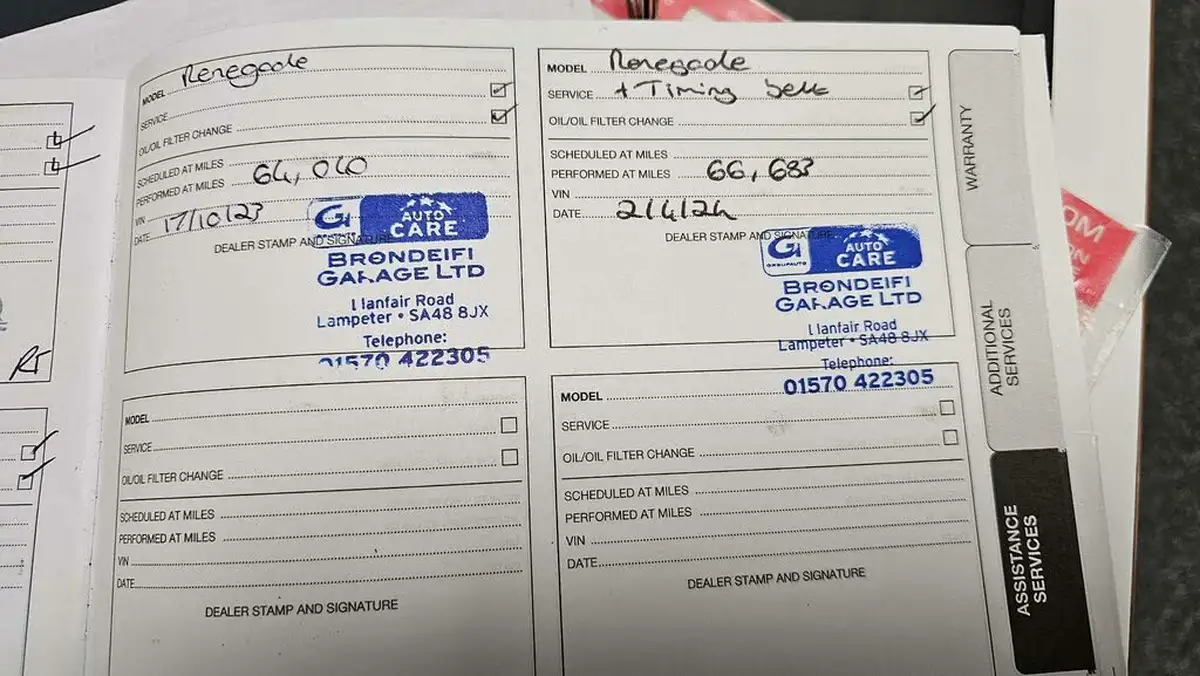 MODEL Renegade
SERVICE
OIL/OIL FILTER CHANGE
SCHEDULED AT MILES
PERFORMED AT MILES 64,040
VIN
DATE 17/10/23
DEALER STAMP AND SIGNATURE
G1 AUTO CARE
BRONDEIFI
GARAGE LTD
Llanfair Road
Lampeter • SA48 8JX
Telephone:
01570 422305
MODEL Renegade
SERVICE + Timing belt
OIL/OIL FILTER CHANGE
SCHEDULED AT MILES
PERFORMED AT MILES 66,683
VIN
DATE 2/4/24
DEALER STAMP AND SIGNATURE
G1 GROUPAUTO AUTO CARE
BRONDEIFI
GARAGE LTD
Llanfair Road
Lampeter • SA48 8JX
Telephone:
01570 422305
MODEL
SERVICE
OIL/OIL FILTER CHANGE
SCHEDULED AT MILES
PERFORMED AT MILES
VIN
DATE
DEALER STAMP AND SIGNATURE
MODEL
SERVICE
OIL/OIL FILTER CHANGE
SCHEDULED AT MILES
PERFORMED AT MILES
VIN
DATE
DEALER STAMP AND SIGNATURE
WARRANTY
ADDITIONAL
SERVICES
ASSISTANCE
SERVICES